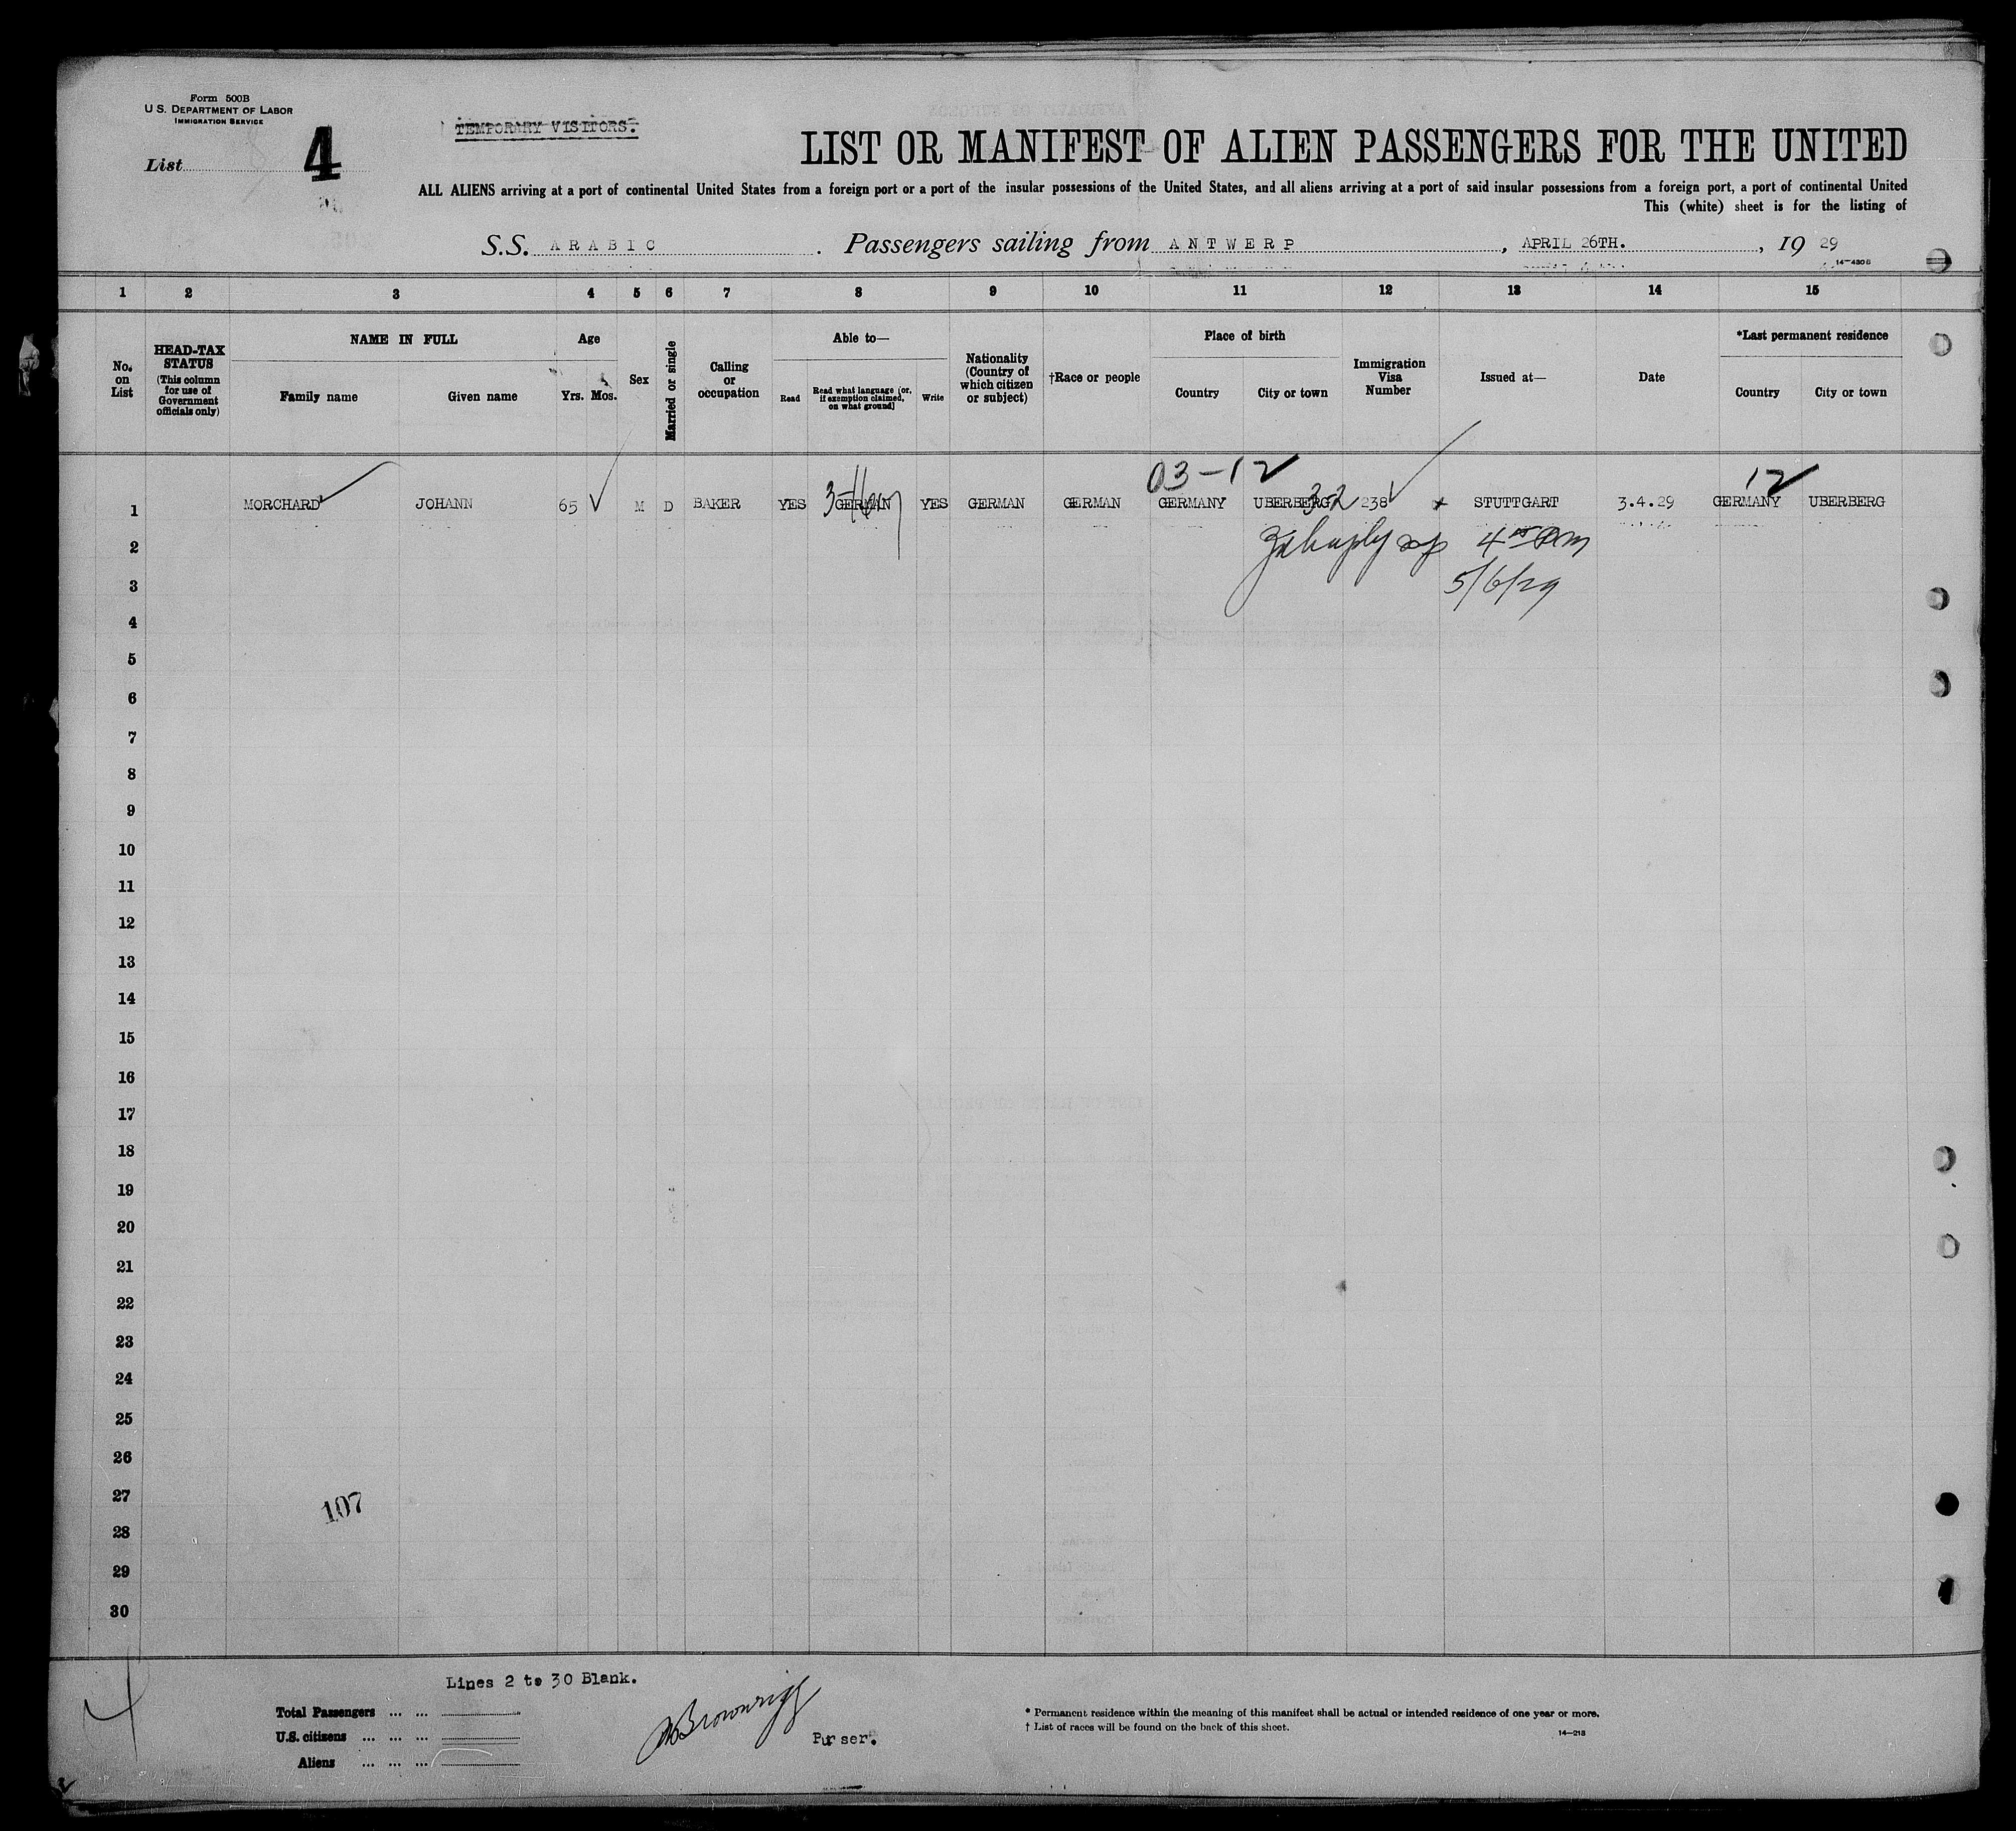 Form 500B
U.S. DEPARTMENT OF LABOR
IMMIGRATION SERVICE
List 4
TEMPORARY VISITORS.
LIST OR MANIFEST OF ALIEN PASSENGERS FOR THE UNITED
ALL ALIENS arriving at a port of continental United States from a foreign port or a port of the insular possessions of the United States, and all aliens arriving at a port of said insular possessions from a foreign port, a port of continental United
This (white) sheet is for the listing of
S.S. ARABIC. Passengers sailing from ANTWERP, APRIL 26TH., 19 29
14—430B
1 2 3 4 5 6 7 8 9 10 11 12 13 14 15
No. on List
HEAD-TAX STATUS (This column for use of Government officials only)
NAME IN FULL
Family name Given name
Age
Yrs. Mos.
Sex
Married or single
Calling or occupation
Able to—
Read Read what language [or, if exemption claimed, on what ground] Write
Nationality (Country of which citizen or subject)
†Race or people
Place of birth
Country City or town
Immigration Visa Number
Issued at—
Date
*Last permanent residence
Country City or town
03-12 12
1 MORCHARD JOHANN 65 M D BAKER YES GERMAN YES GERMAN GERMAN GERMANY UBERBERG 238 STUTTGART 3.4.29 GERMANY UBERBERG
2
3 5/6/29
4
5
6
7
8
9
10
11
12
13
14
15
16
17
18
19
20
21
22
23
24
25
26
27
107
28
29
30
4
Lines 2 to 30 Blank.
Total Passengers ... ...
U.S. citizens ... ... ...
Aliens ... ... ...
Brownrigg
Purser.
* Permanent residence within the meaning of this manifest shall be actual or intended residence of one year or more.
† List of races will be found on the back of this sheet.
14—218